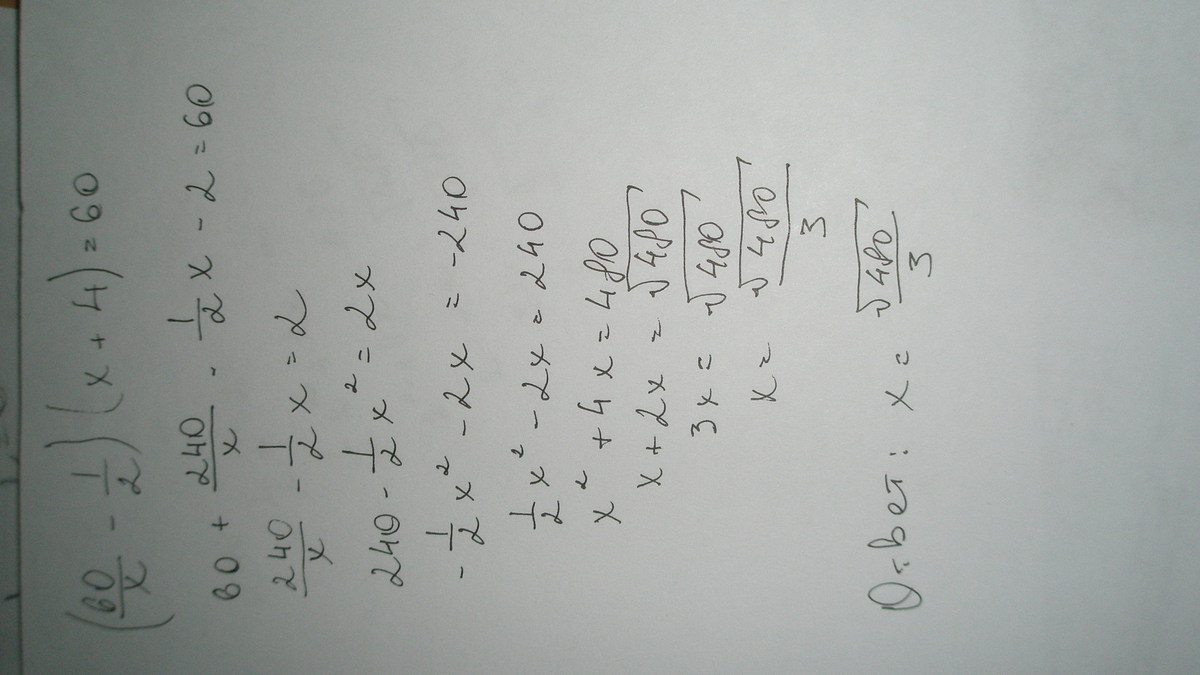 (60/x - 1/2)(x + 4) = 60
60 + 240/x - 1/2 x - 2 = 60
240/x - 1/2 x = 2
240 - 1/2 x² = 2x
- 1/2 x² - 2x = -240
1/2 x² - 2x = 240
x² + 4x = 480
x + 2x = √480
3x = √480
x = √480/3
Ответ: x = √480/3